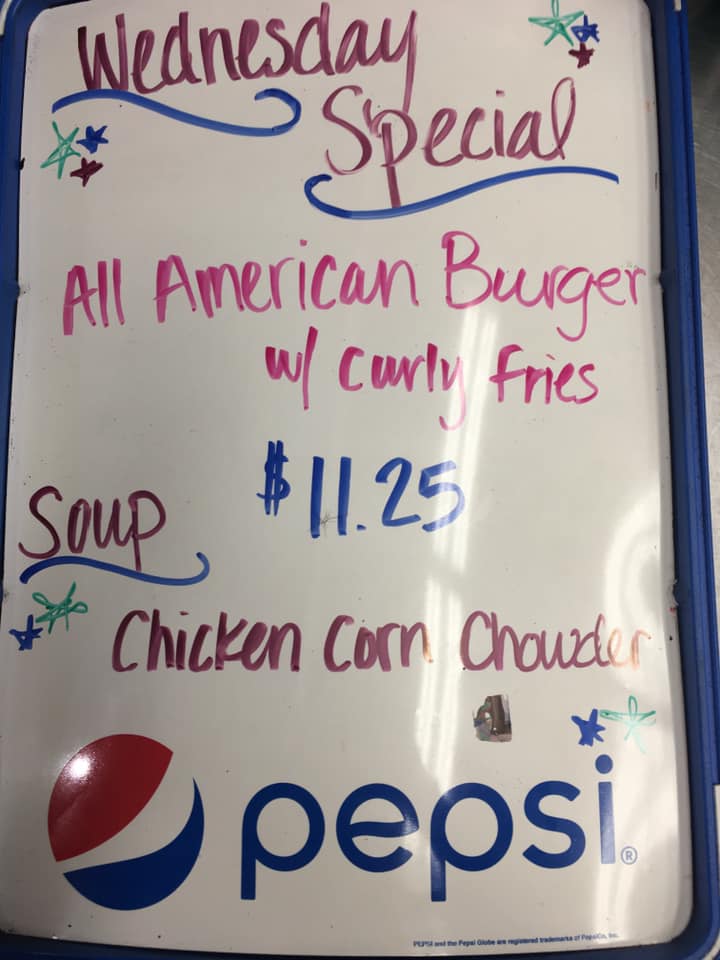 Wednesday
Special
All American Burger
w/ curly fries
$11.25
Soup
Chicken Corn Chowder
pepsi®
PEPSI and the Pepsi Globe are registered trademarks of PepsiCo, Inc.